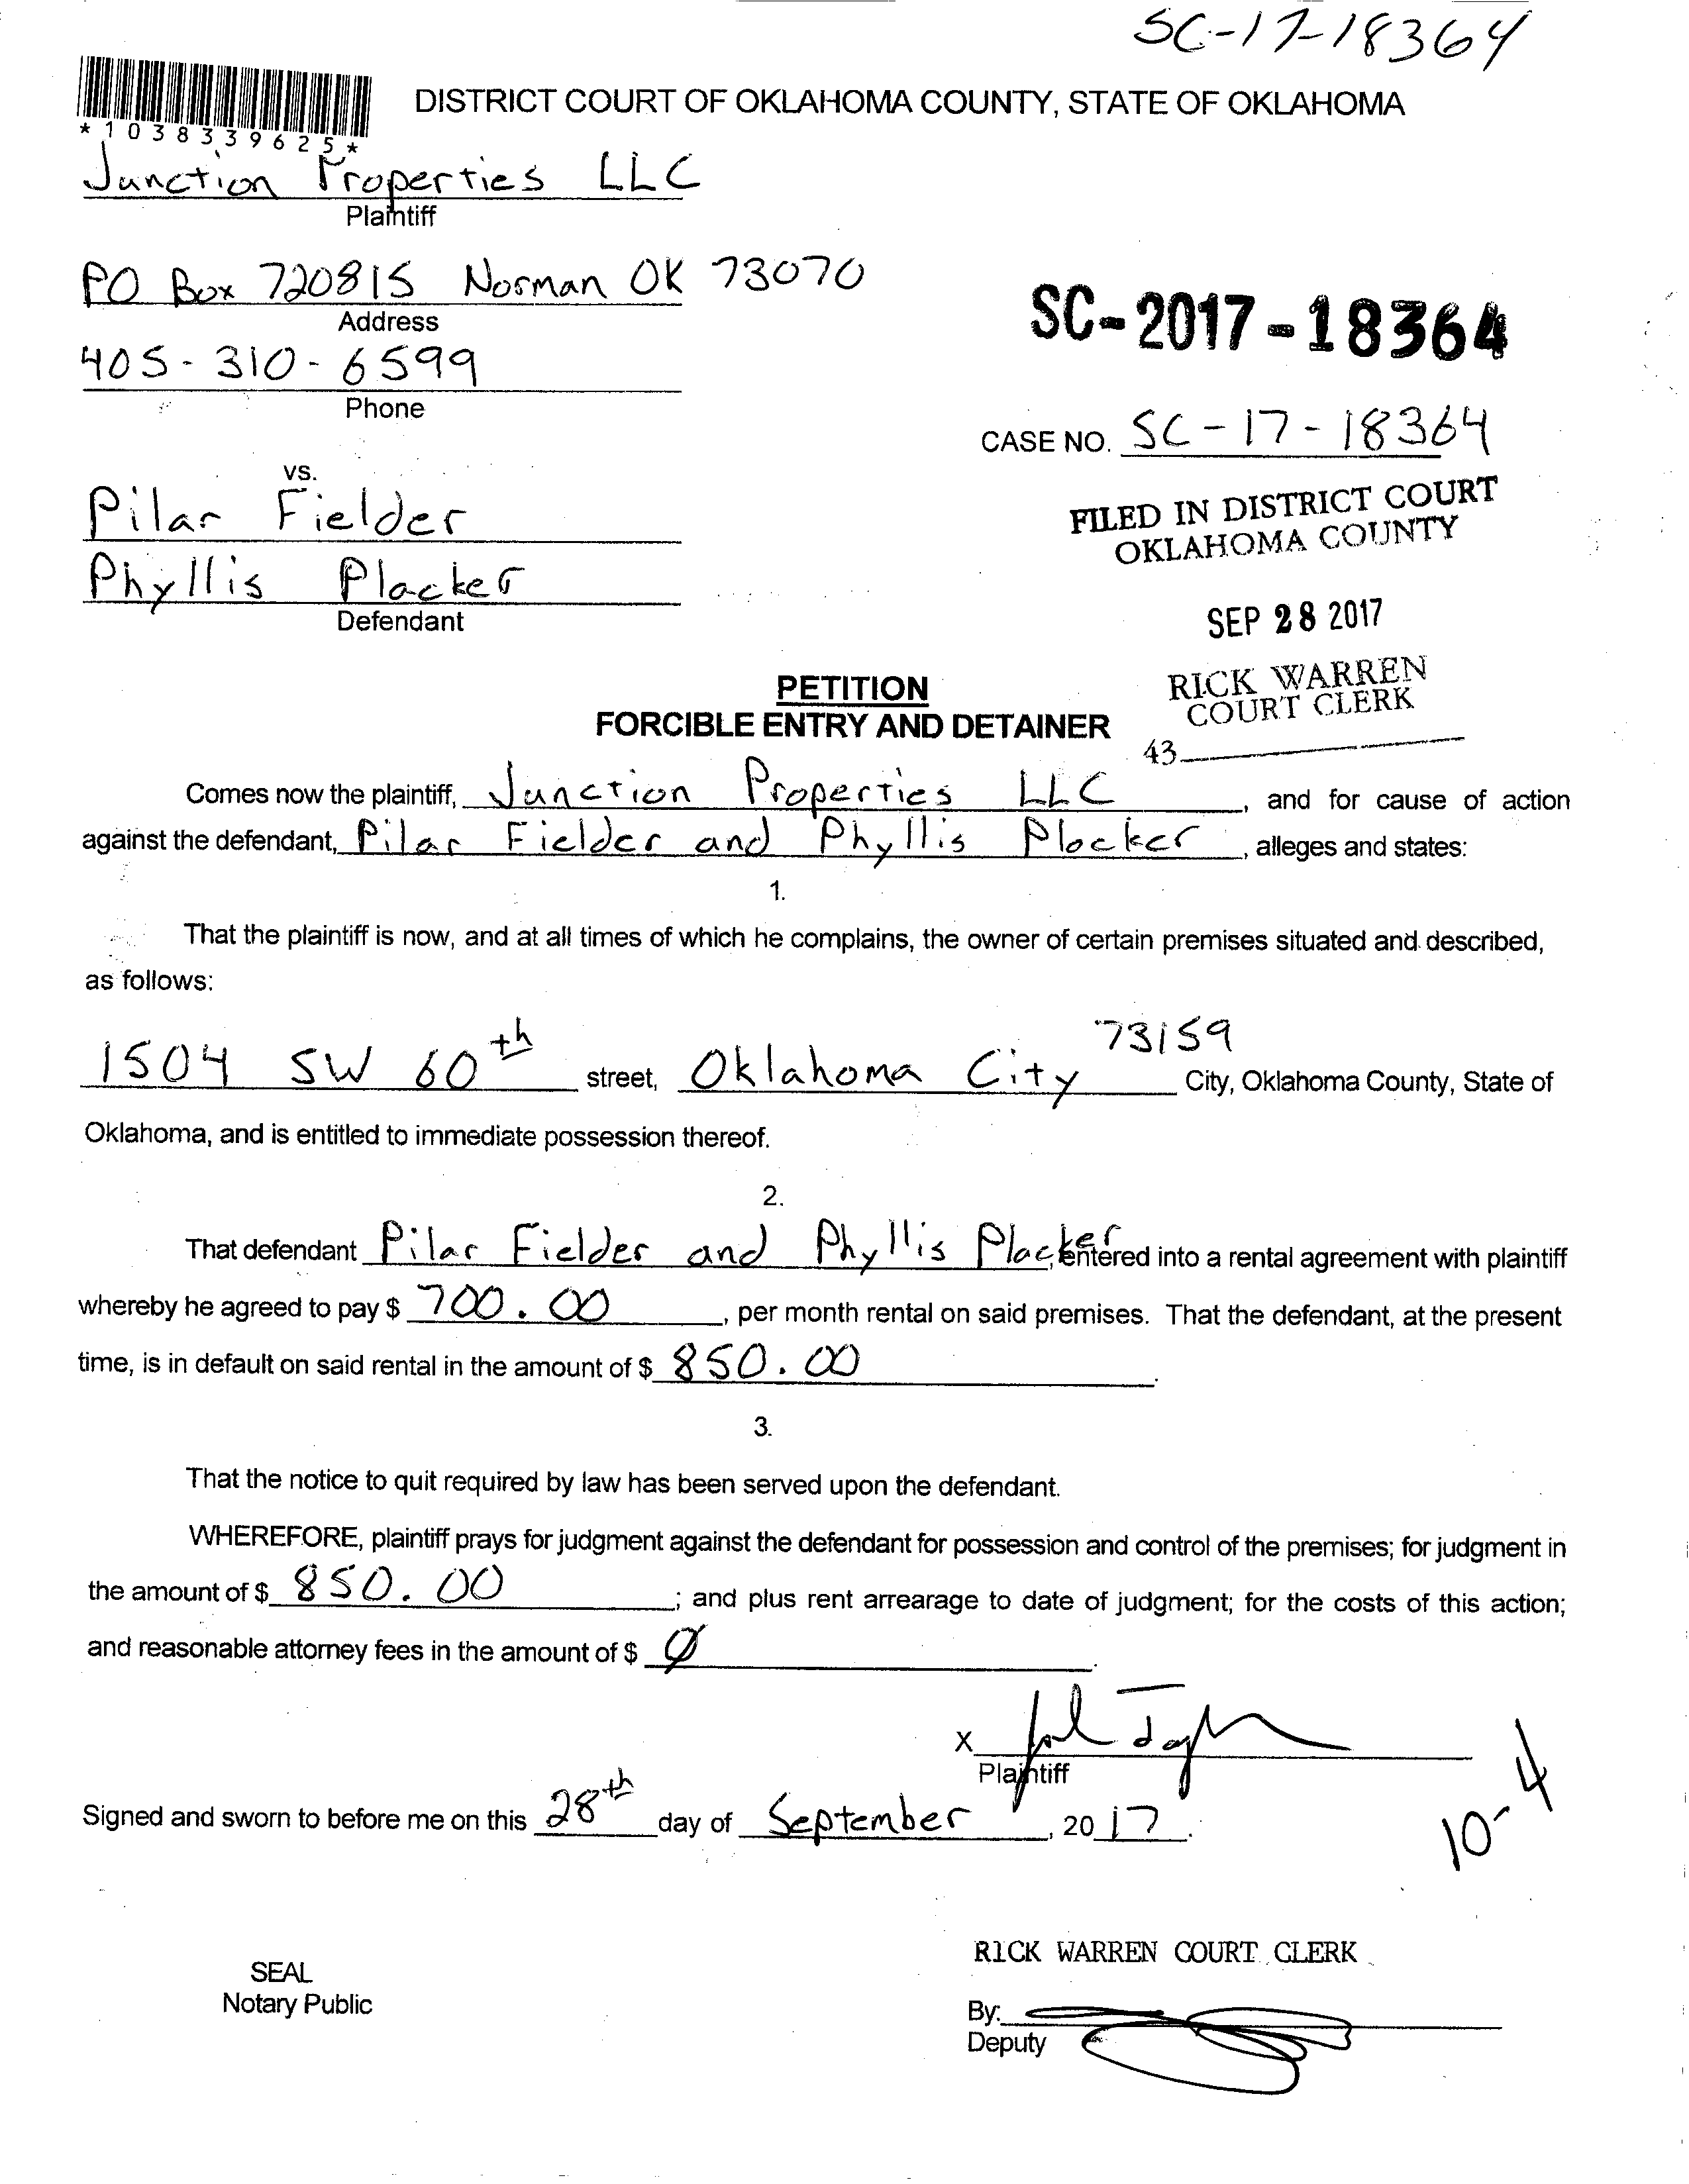 SC-17-18364
DISTRICT COURT OF OKLAHOMA COUNTY, STATE OF OKLAHOMA
*1038339625*
Junction Properties LLC
Plaintiff
PO Box 720815 Norman OK 73070
Address
SC-2017-18364
405-310-6599
Phone
CASE NO. SC-17-18364
vs.
Pilar Fielder
FILED IN DISTRICT COURT
OKLAHOMA COUNTY
Phyllis Placker
Defendant
SEP 28 2017
PETITION
FORCIBLE ENTRY AND DETAINER
RICK WARREN
COURT CLERK
43
Comes now the plaintiff, Junction Properties LLC, and for cause of action
against the defendant, Pilar Fielder and Phyllis Placker, alleges and states:
1.
That the plaintiff is now, and at all times of which he complains, the owner of certain premises situated and described,
as follows:
73159
1504 SW 60th street, Oklahoma City City, Oklahoma County, State of
Oklahoma, and is entitled to immediate possession thereof.
2.
That defendant Pilar Fielder and Phyllis Placker, entered into a rental agreement with plaintiff
whereby he agreed to pay $ 700.00, per month rental on said premises. That the defendant, at the present
time, is in default on said rental in the amount of $ 850.00.
3.
That the notice to quit required by law has been served upon the defendant.
WHEREFORE, plaintiff prays for judgment against the defendant for possession and control of the premises; for judgment in
the amount of $ 850.00; and plus rent arrearage to date of judgment; for the costs of this action;
and reasonable attorney fees in the amount of $ Ø.
X
Plaintiff
Signed and sworn to before me on this 28th day of September, 2017.
10-4
RICK WARREN COURT CLERK
SEAL
Notary Public
By:
Deputy